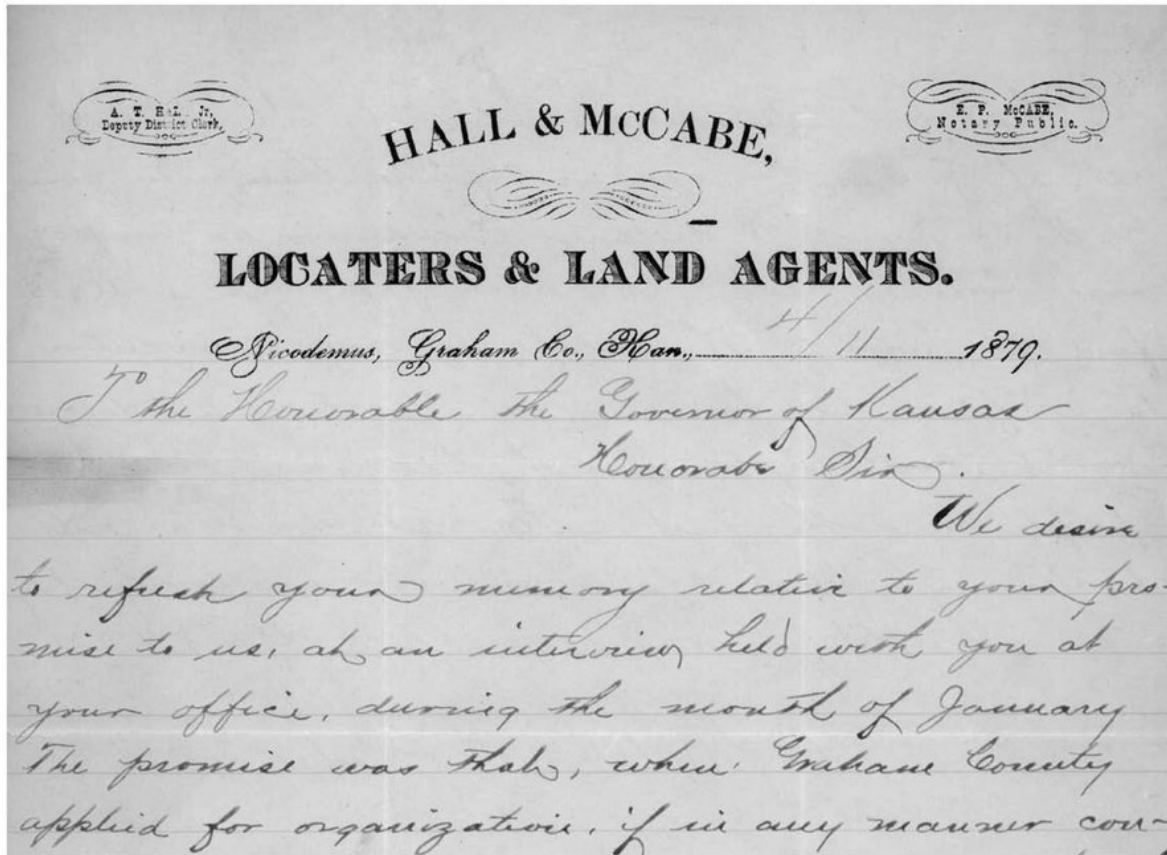 A. T. HALL Jr,
Deputy District Clerk,
E. P. McCABE,
Notary Public.
HALL & McCABE,
LOCATERS & LAND AGENTS.
Nicodemus, Graham Co., Kan., 4/11 1879.
To the Honorable the Governor of Kansas
Honorabe Sir.
We desire
to refresh your memory relative to your pro-
mise to us, at an interview held with you at
your office, during the month of January
The promise was that, when Graham County
applied for organization, if in any manner con-